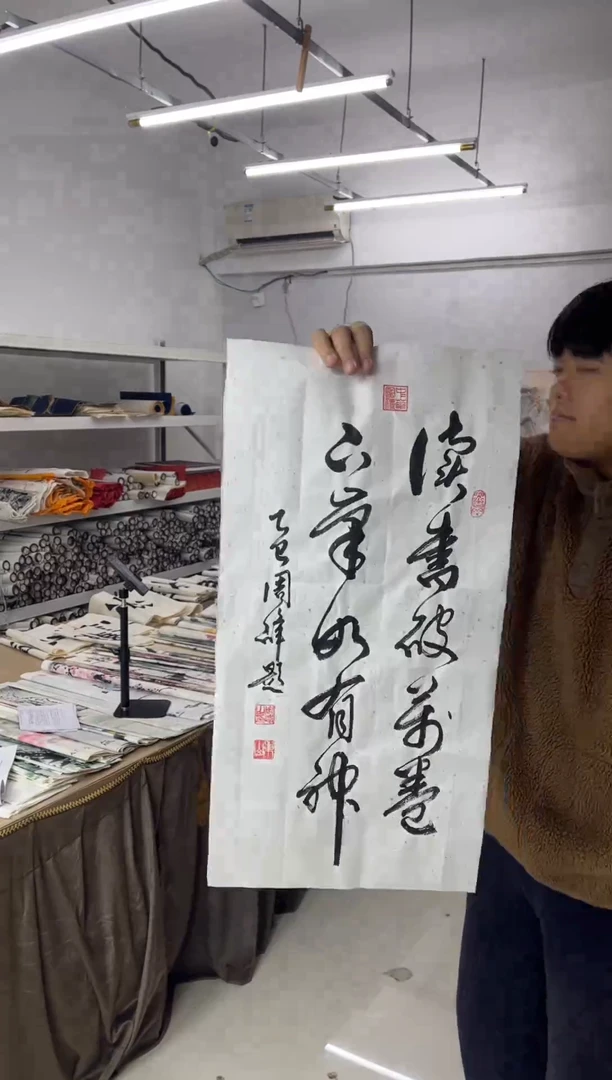 读书破万卷
下笔如有神
乙巳周辉题